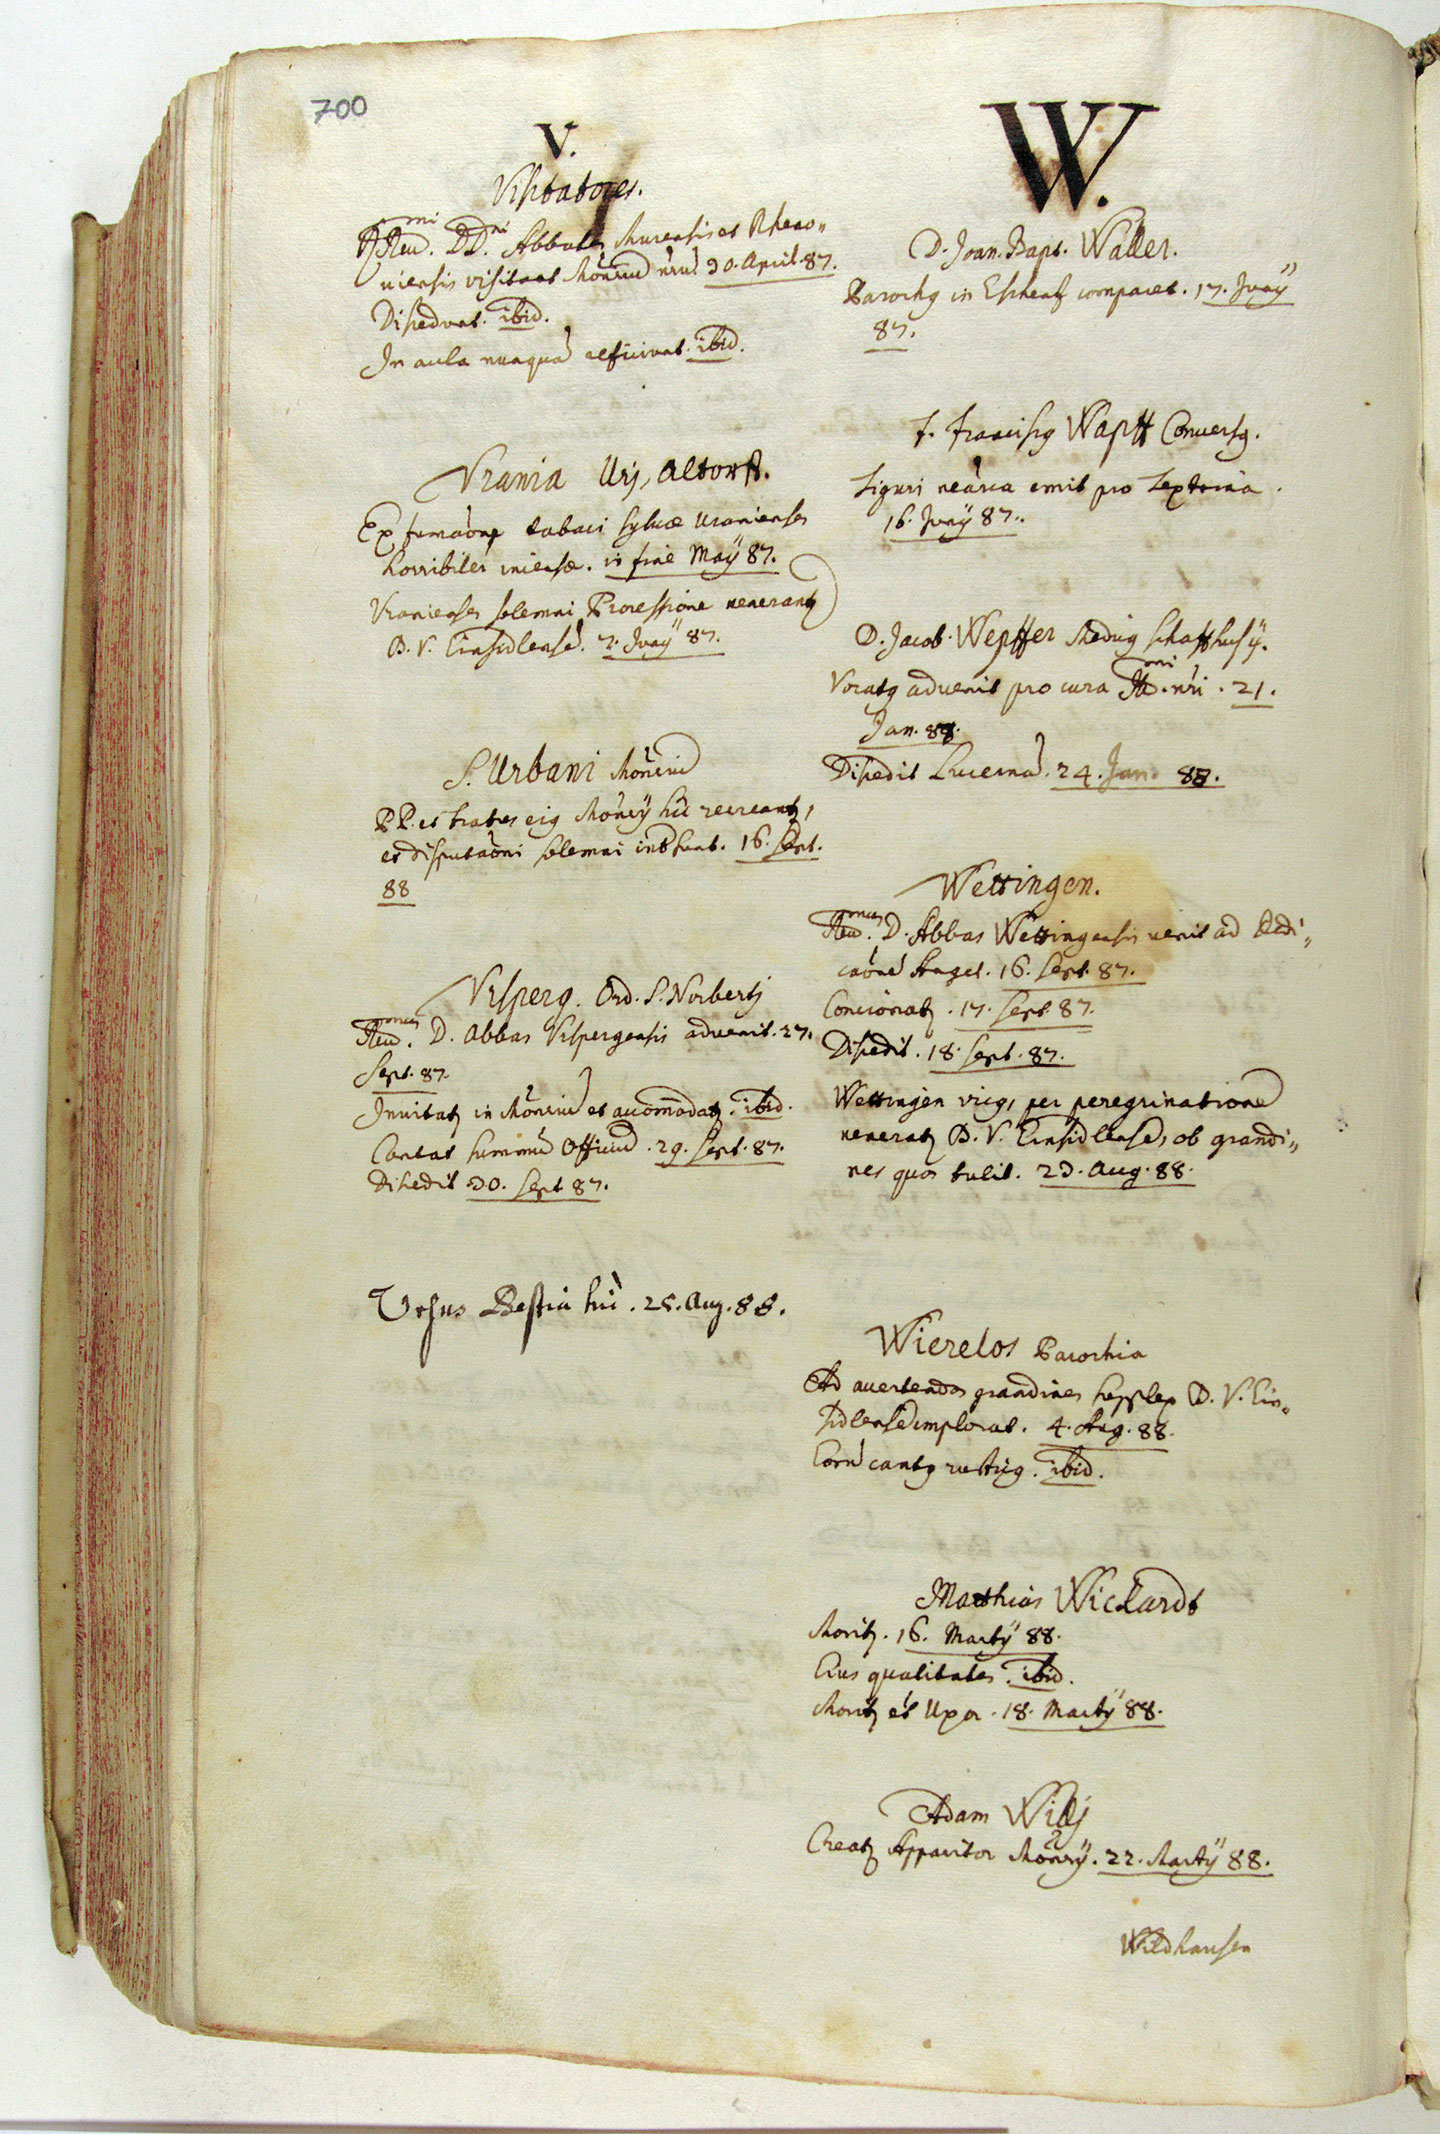 700
V.
Visitatores.
RRev.mi DD.ni Abbates Murensis et Rheno„
viensis visitant Mōnriū nrū 30. April. 87.
Discedunt. ibid.
In aula nunquā reficiunt. ibid.
Vrania Urj, Altorff.
Ex fumāōne tabaci sylvæ Uranienses
horribiliter incensæ. in fine Maÿ 87.
Vranienses solemni Processione venerantur
B. V. Einsidlensē. 7. Junÿ 87.
S. Urbani Mōnriū
PP. et Fratres eius Mōnrÿ hic recreantur,
et disputāōni solemni intersunt. 16. Sept.
88
Vrsperg. Ord. S. Norbertj
Rev.mus D. Abbas Vrspergensis advenit. 27.
Sept. 87.
Invitatur in Mōnriū et accomodatur. ibid.
Cantat summū Officiū. 29. Sept. 87.
Discedit 30. Sept 87.
Vrsus Bestia hic. 25. Aug. 88.
W.
D. Joan. Bapt. Waller.
Parochus in comparet. 17. Junÿ
87.
F. Franciscus Wapff Conversus.
Tiguri neāria emit pro Textrina.
16. Junÿ 87.
D. Jacob. Wepffer Medicus Schaffhusÿ.
Vocatus advenit pro cura R.mi nri. 21.
Jan. 88.
Discedit Lucernā. 24. Jan. 88.
Wettingen.
Rev.mus D. Abbas Wettingensis venit ad Dedi„
cāōnē Angel. 16. Sept. 87.
Concionatur. 17. Sept 87.
Discedit. 18. Sept. 87.
Wettingen vicus, per peregrinationē
veneratur B. V. Einsidlensē, ob grandi„
nes quas tulit. 23. Aug. 88.
Wierelos Parochia
Ad avertendas grandines supplex B. V. Ein„
sidlensē implorat. 4. Aug. 88.
Eorū cantus rusticus. ibid.
Matthias Wickardt
Moritur. 16. Martÿ 88.
Eius qualitates. ibid.
Moritur et Uxor. 18. Martÿ 88.
Adam Willj
Creatur Apparitor Mōnrÿ. 22. Martÿ 88.
Wildhausen